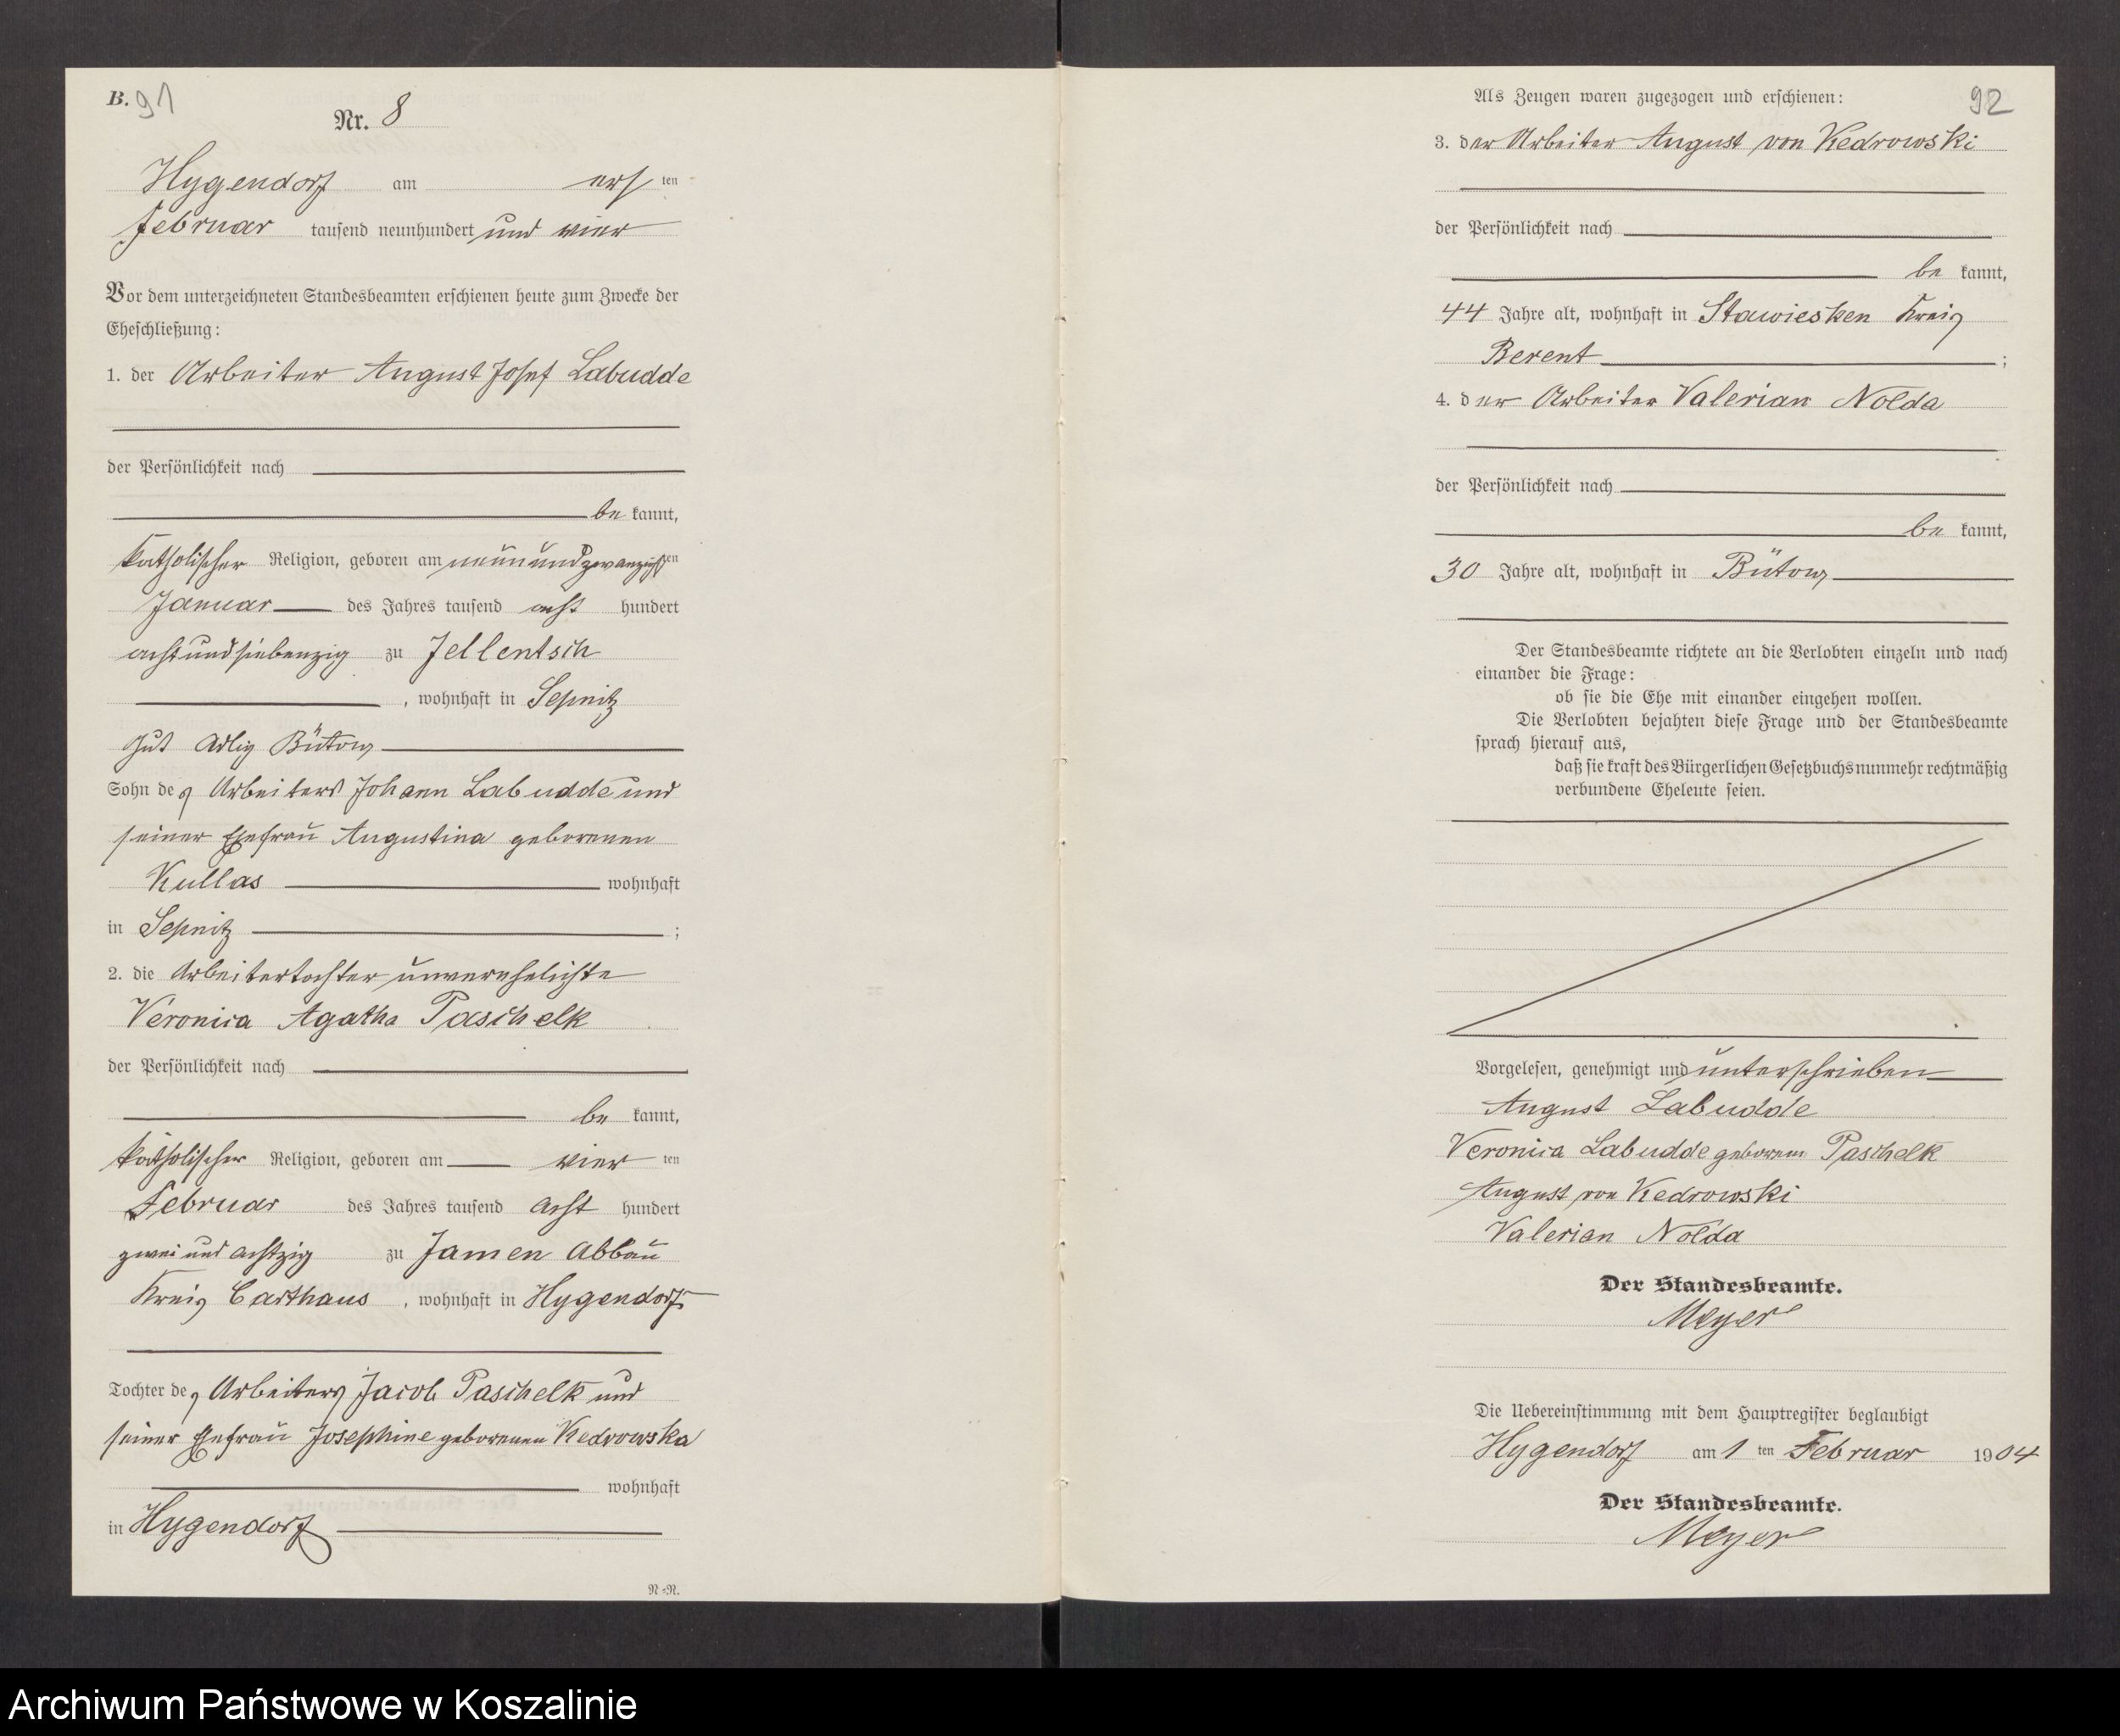 B. 91
Nr. 8
Hygendorf am ersten
Februar tausend neunhundert und vier
Vor dem unterzeichneten Standesbeamten erschienen heute zum Zwecke der
Eheschließung:
1. der Arbeiter August Josef Labudde
der Persönlichkeit nach
be kannt,
katholischer Religion, geboren am neunundzwanzigsten
Januar des Jahres tausend acht hundert
achtundsiebenzig zu Jellentsch
, wohnhaft in Sepnitz
Gut Adlig Bütow
Sohn des Arbeiters Johann Labudde und
seiner Ehefrau Augustina geborenen
Kullas wohnhaft
in Sepnitz ;
2. die Arbeitertochter unverehelichte
Veronica Agatha Paschelk
der Persönlichkeit nach
be kannt,
katholischer Religion, geboren am vier ten
Februar des Jahres tausend acht hundert
zwei und achtzig zu Jamen Abbau
Kreis Carthaus , wohnhaft in Hygendorf
Tochter des Arbeiters Jacob Paschelk und
seiner Ehefrau Josephine geborenen Kedrowska
wohnhaft
in Hygendorf
N-N.
92
Als Zeugen waren zugezogen und erschienen:
3. der Arbeiter August von Kedrowski
der Persönlichkeit nach
be kannt,
44 Jahre alt, wohnhaft in Stawiesken Kreis
Berent ;
4. der Arbeiter Valerian Nolda
der Persönlichkeit nach
be kannt,
30 Jahre alt, wohnhaft in Bütow
Der Standesbeamte richtete an die Verlobten einzeln und nach
einander die Frage:
ob sie die Ehe mit einander eingehen wollen.
Die Verlobten bejahten diese Frage und der Standesbeamte
sprach hierauf aus,
daß sie kraft des Bürgerlichen Gesetzbuchs nunmehr rechtmäßig
verbundene Eheleute seien.
Vorgelesen, genehmigt und unterschrieben
August Labudde
Veronica Labudde geborene Paschelk
August von Kedrowski
Valerian Nolda
Der Standesbeamte.
Meyer
Die Uebereinstimmung mit dem Hauptregister beglaubigt
Hygendorf am 1 ten Februar 1904
Der Standesbeamte.
Meyer
Archiwum Państwowe w Koszalinie